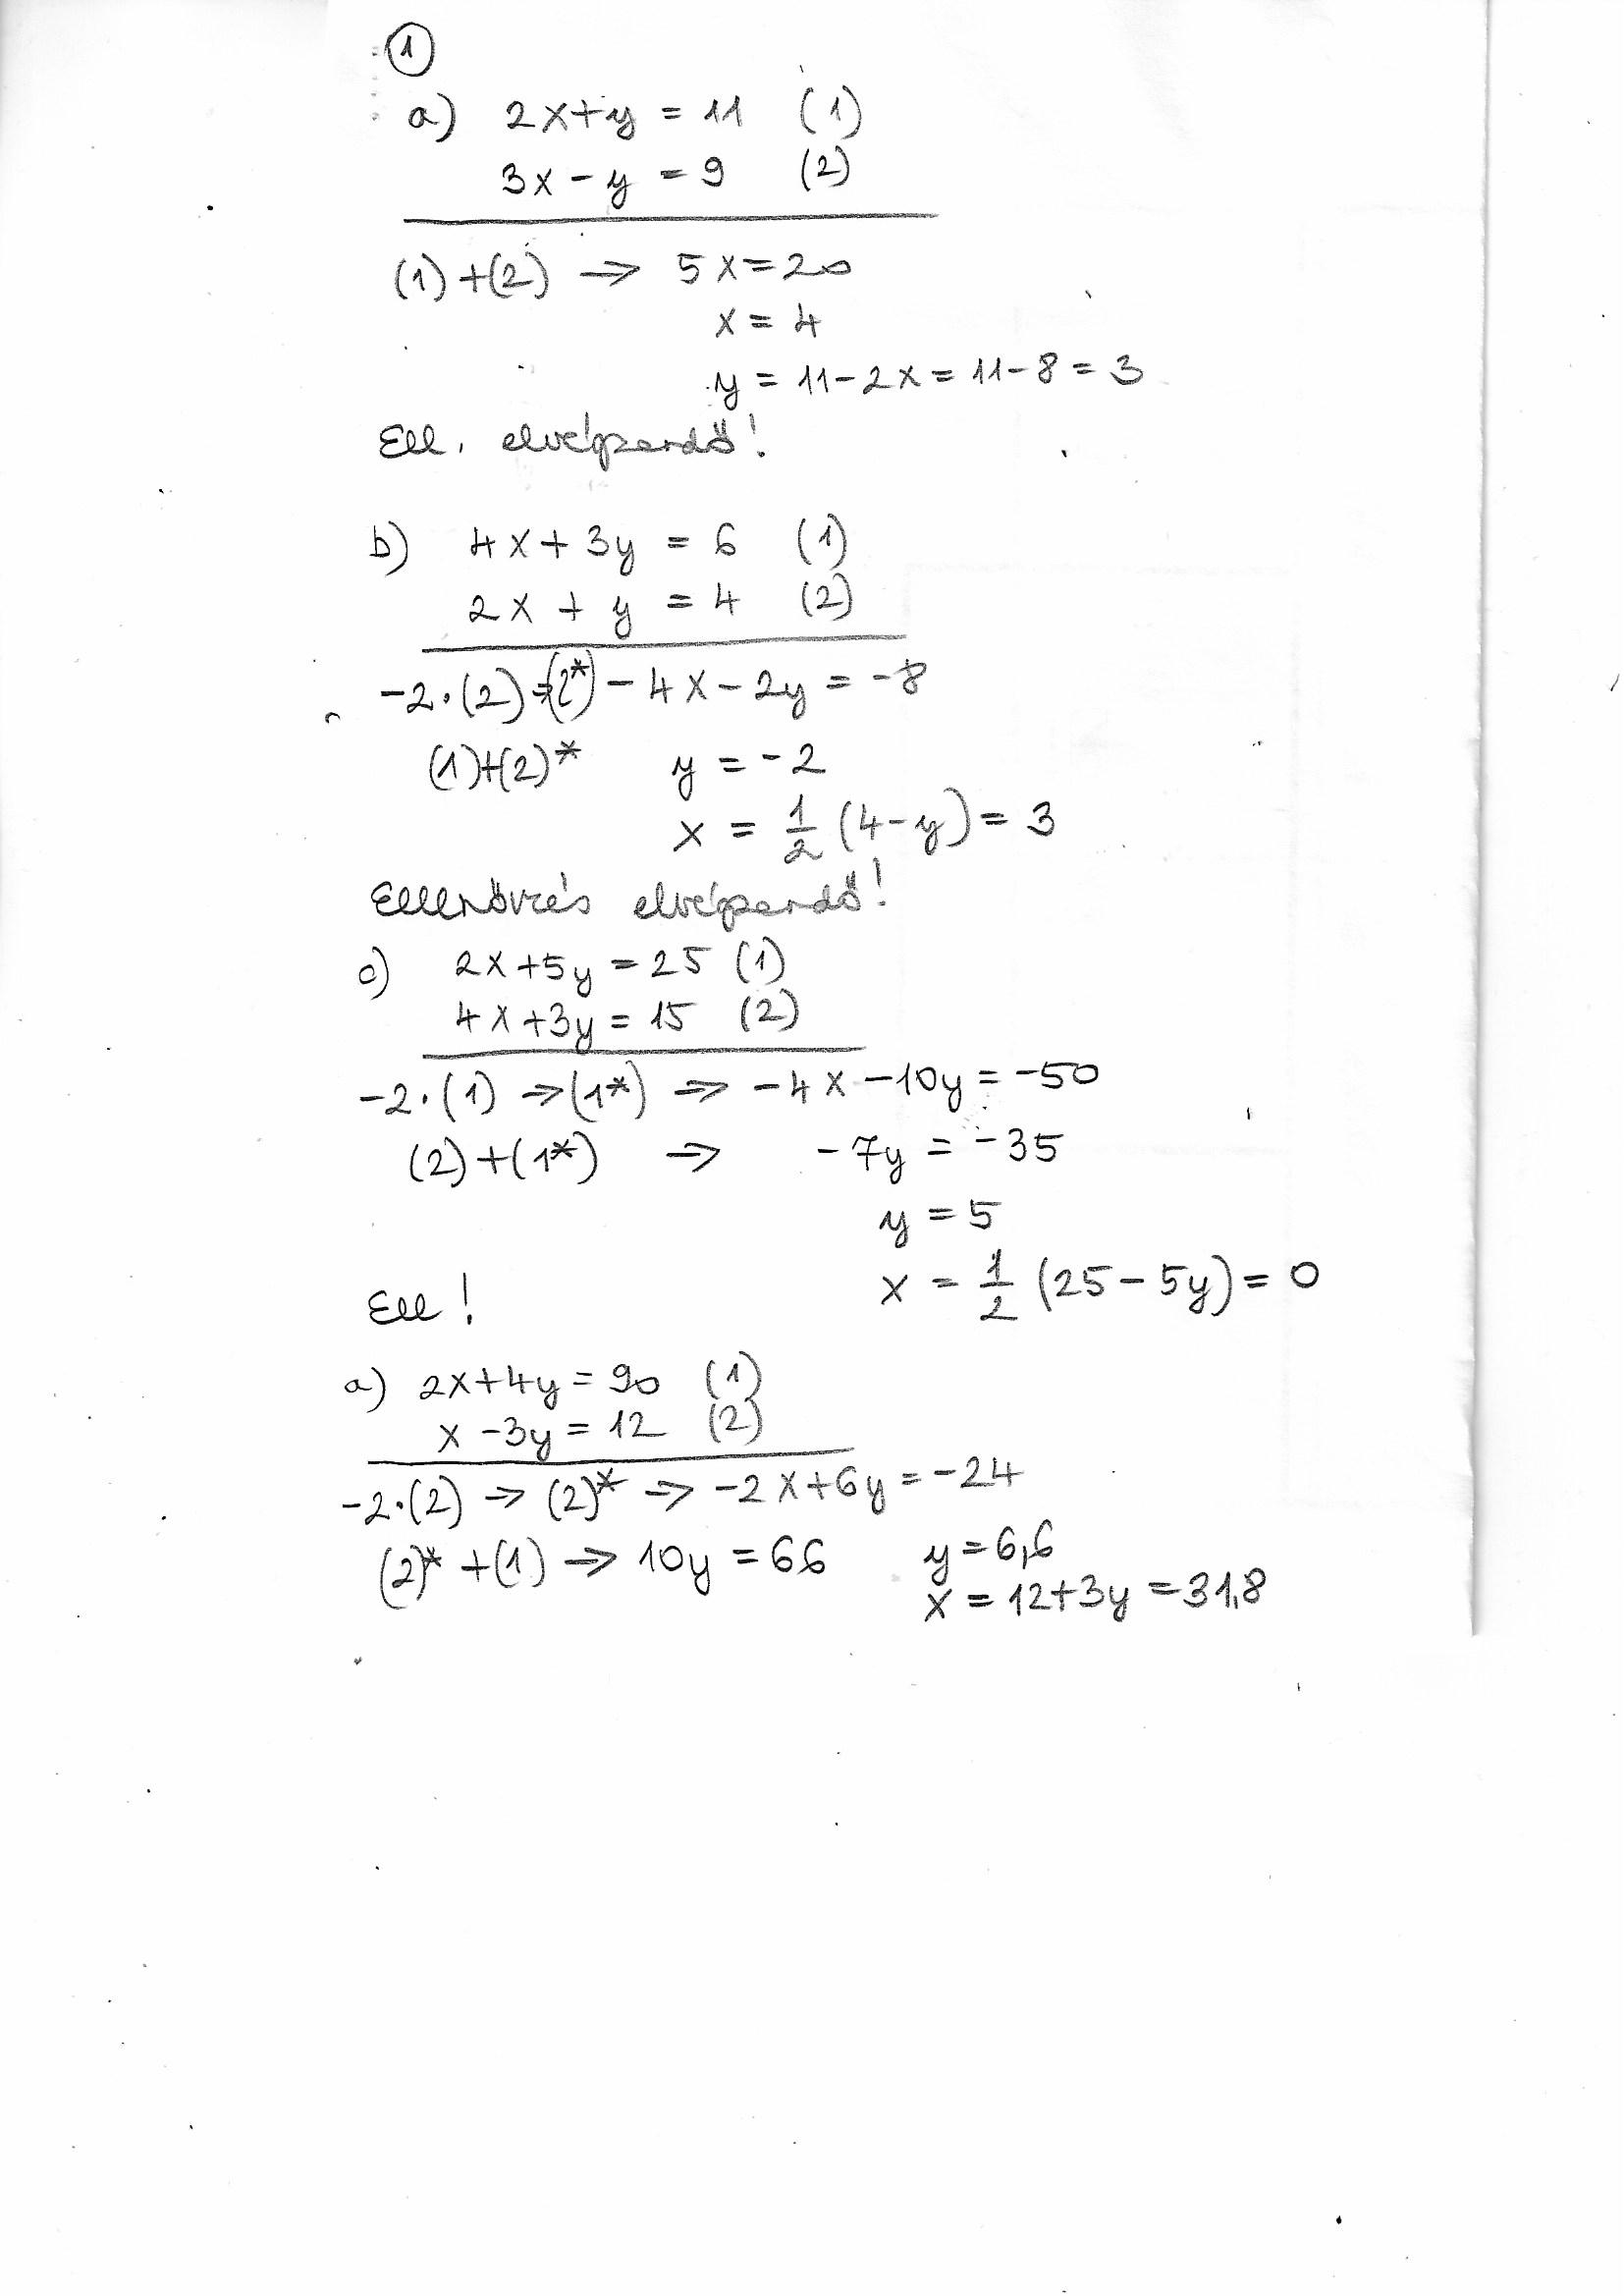 1
a) 2x+y = 11 (1)
3x - y = 9 (2)
(1)+(2) → 5x=20
x = 4
y = 11-2x = 11-8 = 3
Ell. elvégzendő!
b) 4x+3y = 6 (1)
2x + y = 4 (2)
-2·(2)→(2*) -4x-2y = -8
(1)+(2)* y = -2
x = 1/2 (4-y) = 3
Elllnőrzés elvégzendő!
c) 2x+5y = 25 (1)
4x+3y = 15 (2)
-2·(1) →(1*) → -4x-10y = -50
(2)+(1*) → -7y = -35
y = 5
x = 1/2 (25-5y) = 0
Ell!
a) 2x+4y = 90 (1)
x-3y = 12 (2)
-2·(2) → (2)* → -2x+6y = -24
(2)*+(1) → 10y = 66 y = 6,6
x = 12+3y = 31,8